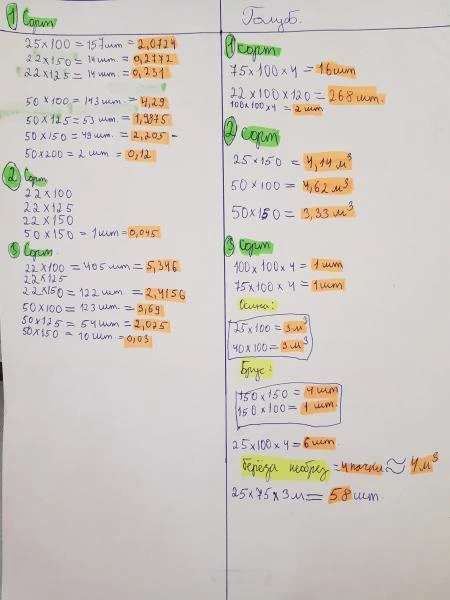 1 Сорт
25×100 = 157 шт. = 2,0724
22×150 = 14 шт. = 0,2772
22×125 = 14 шт. = 0,231
50×100 = 143 шт. = 4,29
50×125 = 53 шт. = 1,9875
50×150 = 49 шт. = 2,205 -
50×200 = 2 шт = 0,12
2 Сорт
22×100
22×125
22×150
50×150 = 1 шт = 0,045
3 Сорт.
22×100 = 405 шт = 5,346
22×125
22×150 = 122 шт. = 2,4156
50×100 = 123 шт. = 3,69
50×125 = 54 шт. = 2,025
50×150 = 10 шт. = 0,03
Голуб.
1 сорт
75×100×4 = 16 шт
22×100×120 = 268 шт.
100×100×4 = 2 шт
2 сорт
25×150 = 4,14 м³
50×100 = 4,62 м³
50×150 = 3,33 м³
3 Сорт
100×100×4 = 1 шт
75×100×4 = 1 шт
Осина:
25×100 = 3 м³
40×100 = 3 м³
Брус:
150×150 = 4 шт
150×100 = 1 шт.
25×100×4 = 6 шт
берёза необрез = 4 пачки ≈ 4 м³
25×75×3м = 58 шт.